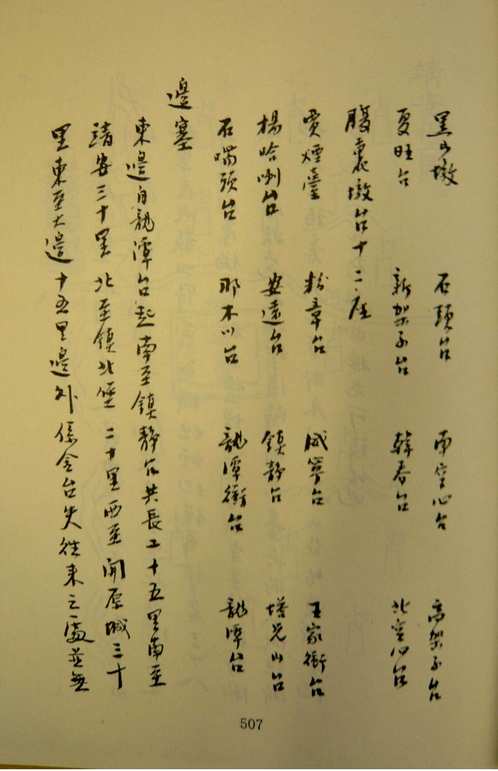 黑山墩 石頭台 南空心台 高架子台
夏旺台 新架子台 韓春台 北空心台
腹裏墩台十二座
賈煙臺 粉章台 咸寧台 王家衝台
楊哈唎台 安遠台 鎮靜台 塔兒山台
石嘴頭台 那木川台 龍潭衝台 龍潭台
邊塞
東邊自龍潭台起南至鎮靜台共長二十五里南至
靖安三十里北至鎮北堡二十里西至開原城三十
里東至大邊十五里邊外係会台失往來之處並無
507